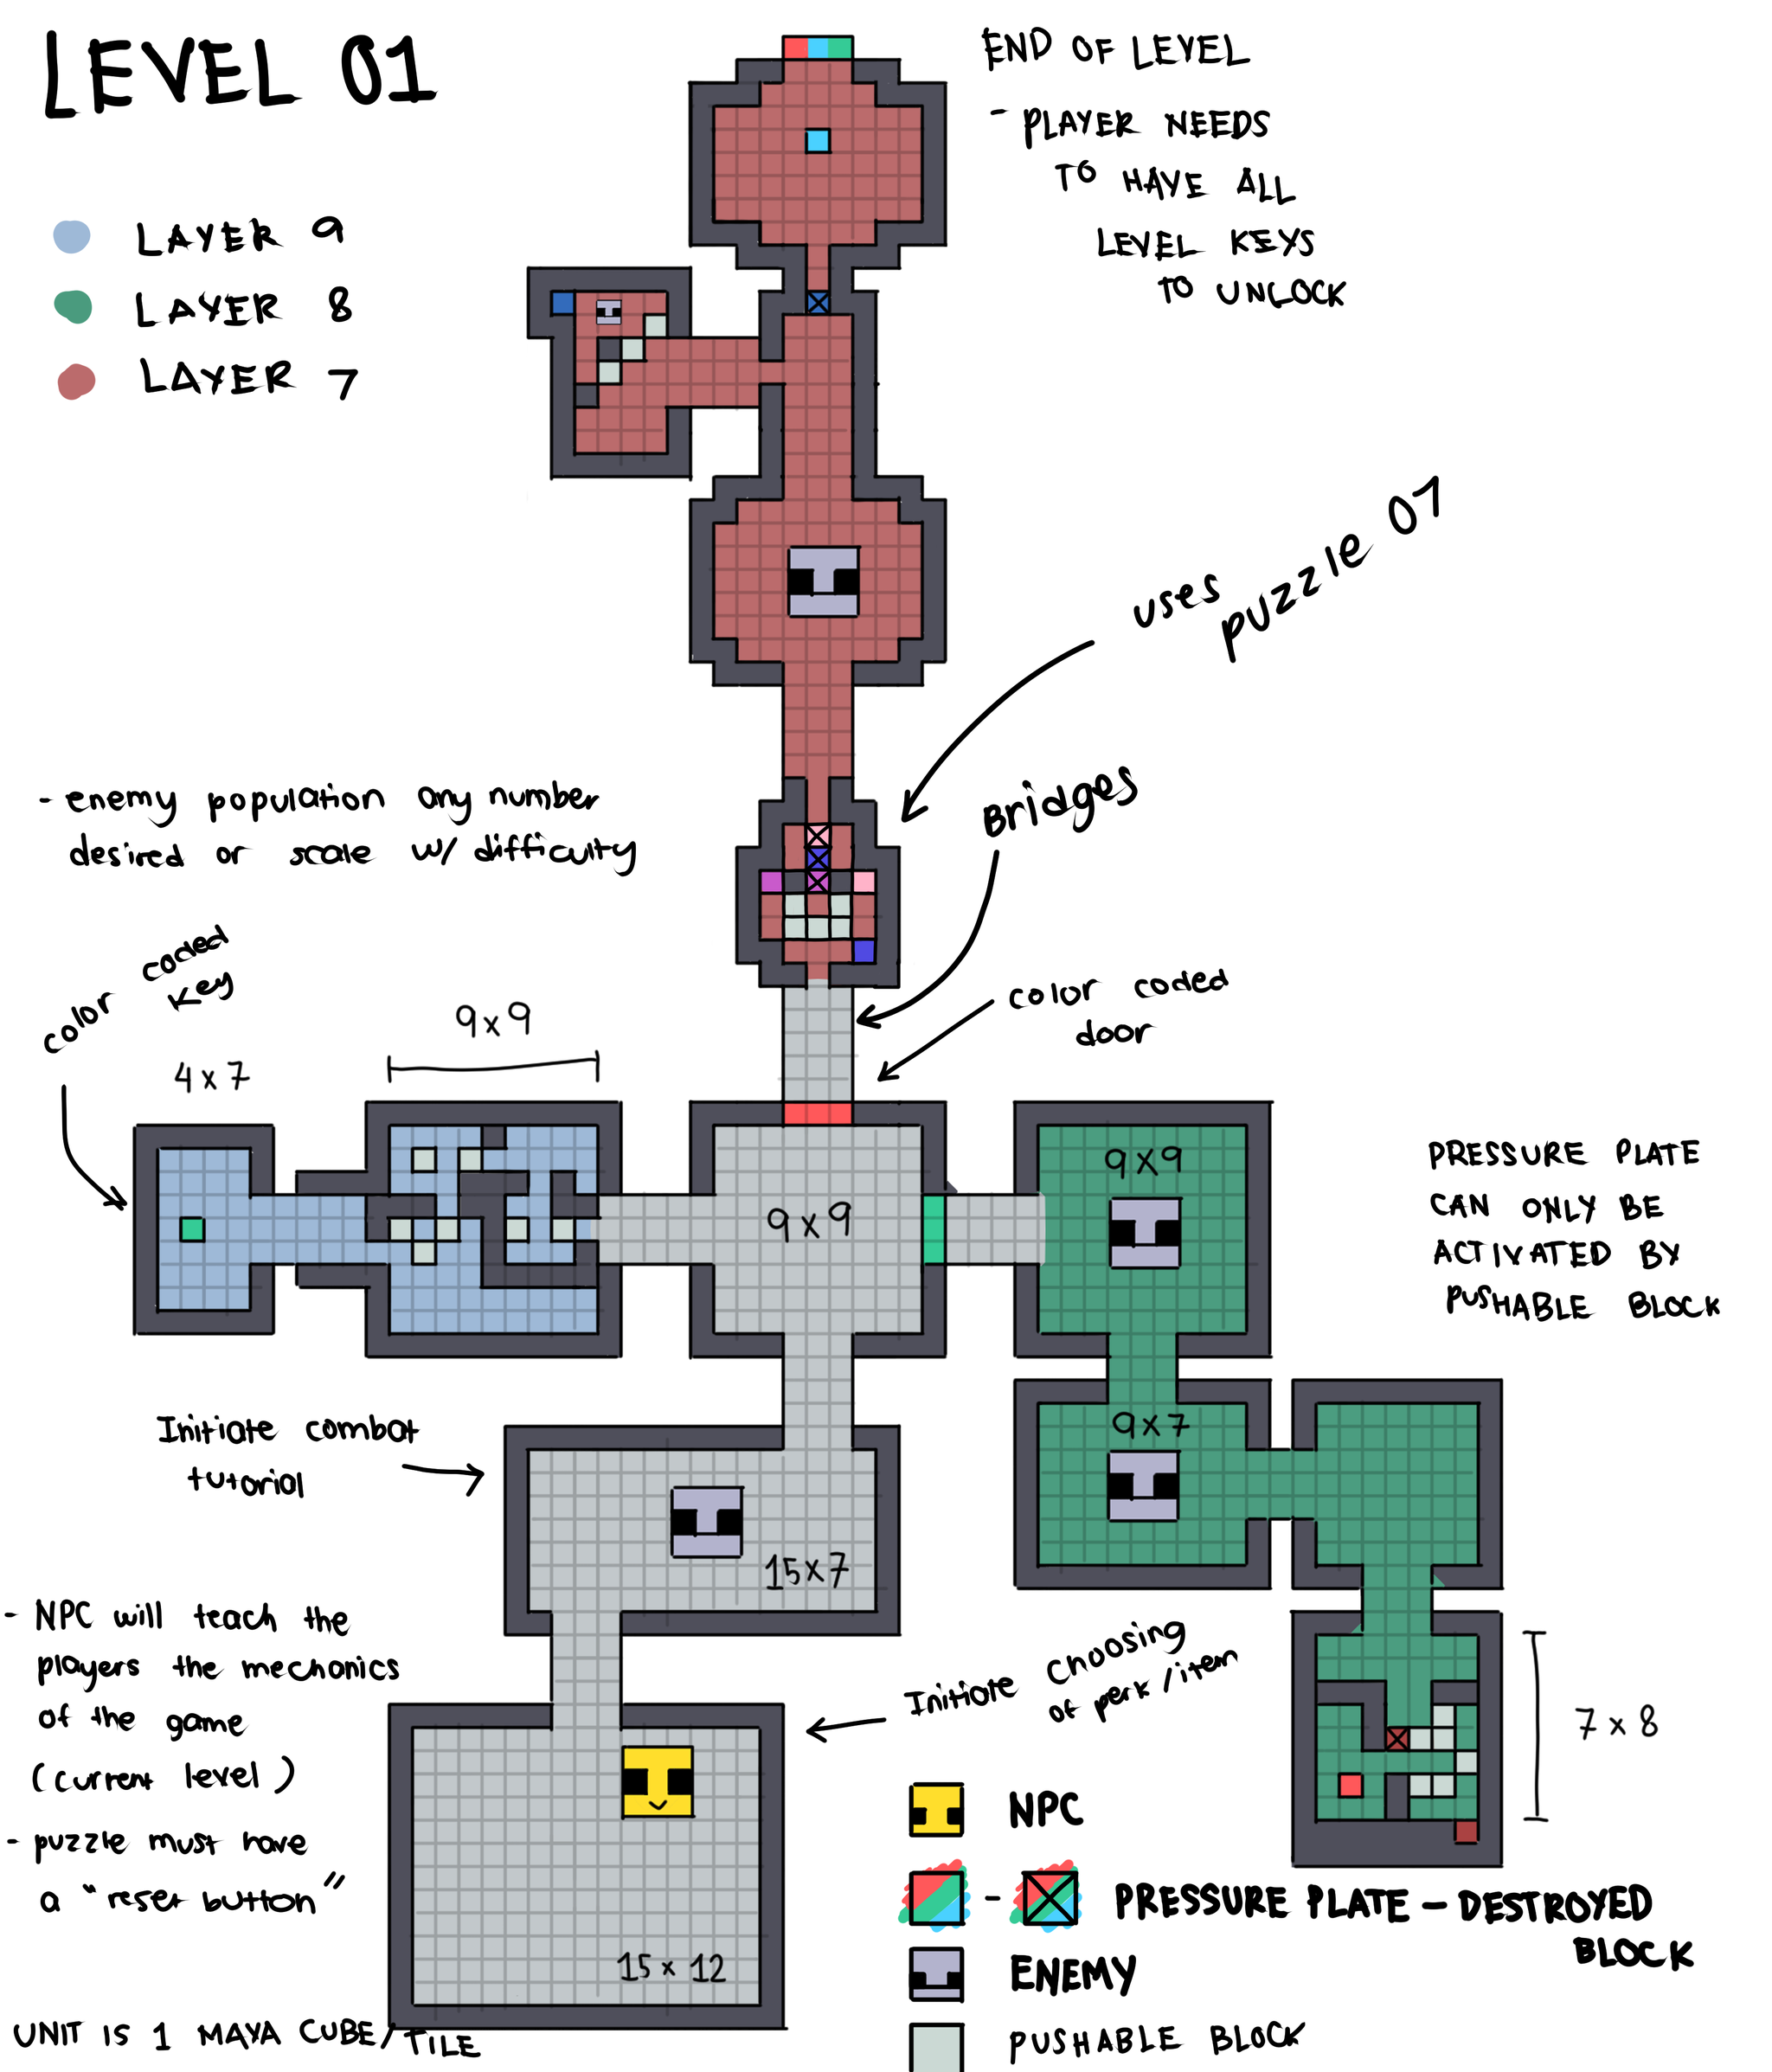 LEVEL 01
END OF LEVEL
- PLAYER NEEDS
TO HAVE ALL
LEVEL KEYS
TO UNLOCK
LAYER 9
LAYER 8
LAYER 7
uses
puzzle 01
Bridges
- enemy population any number
desired or scale w/ difficulty
color coded
key
color coded
door
4x7
9x9
9x9
9x9
PRESSURE PLATE
CAN ONLY BE
ACTIVATED BY
PUSHABLE BLOCK
Initiate combat
tutorial
9x7
15x7
- NPC will teach the
players the mechanics
of the game
(current level)
- puzzle must have
a "reset button"
Initiate choosing
of perk/item
7x8
15x12
NPC
- PRESSURE PLATE - DESTROYED
BLOCK
ENEMY
PUSHABLE BLOCK
UNIT IS 1 MAYA CUBE/TILE